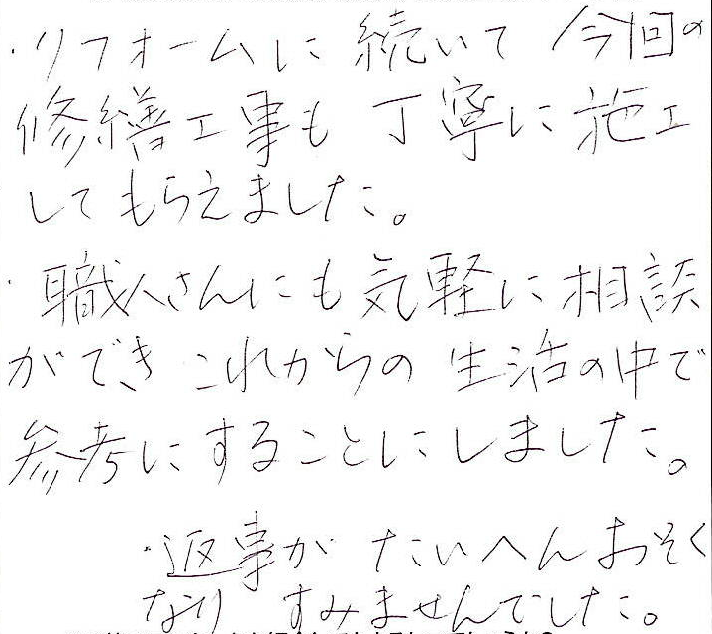 ・リフォームに続いて今回の
修繕工事も丁寧に施工
してもらえました。
・職人さんにも気軽に相談
ができこれからの生活の中で
参考にすることにしました。
・返事がたいへんおそく
なりすみませんでした。